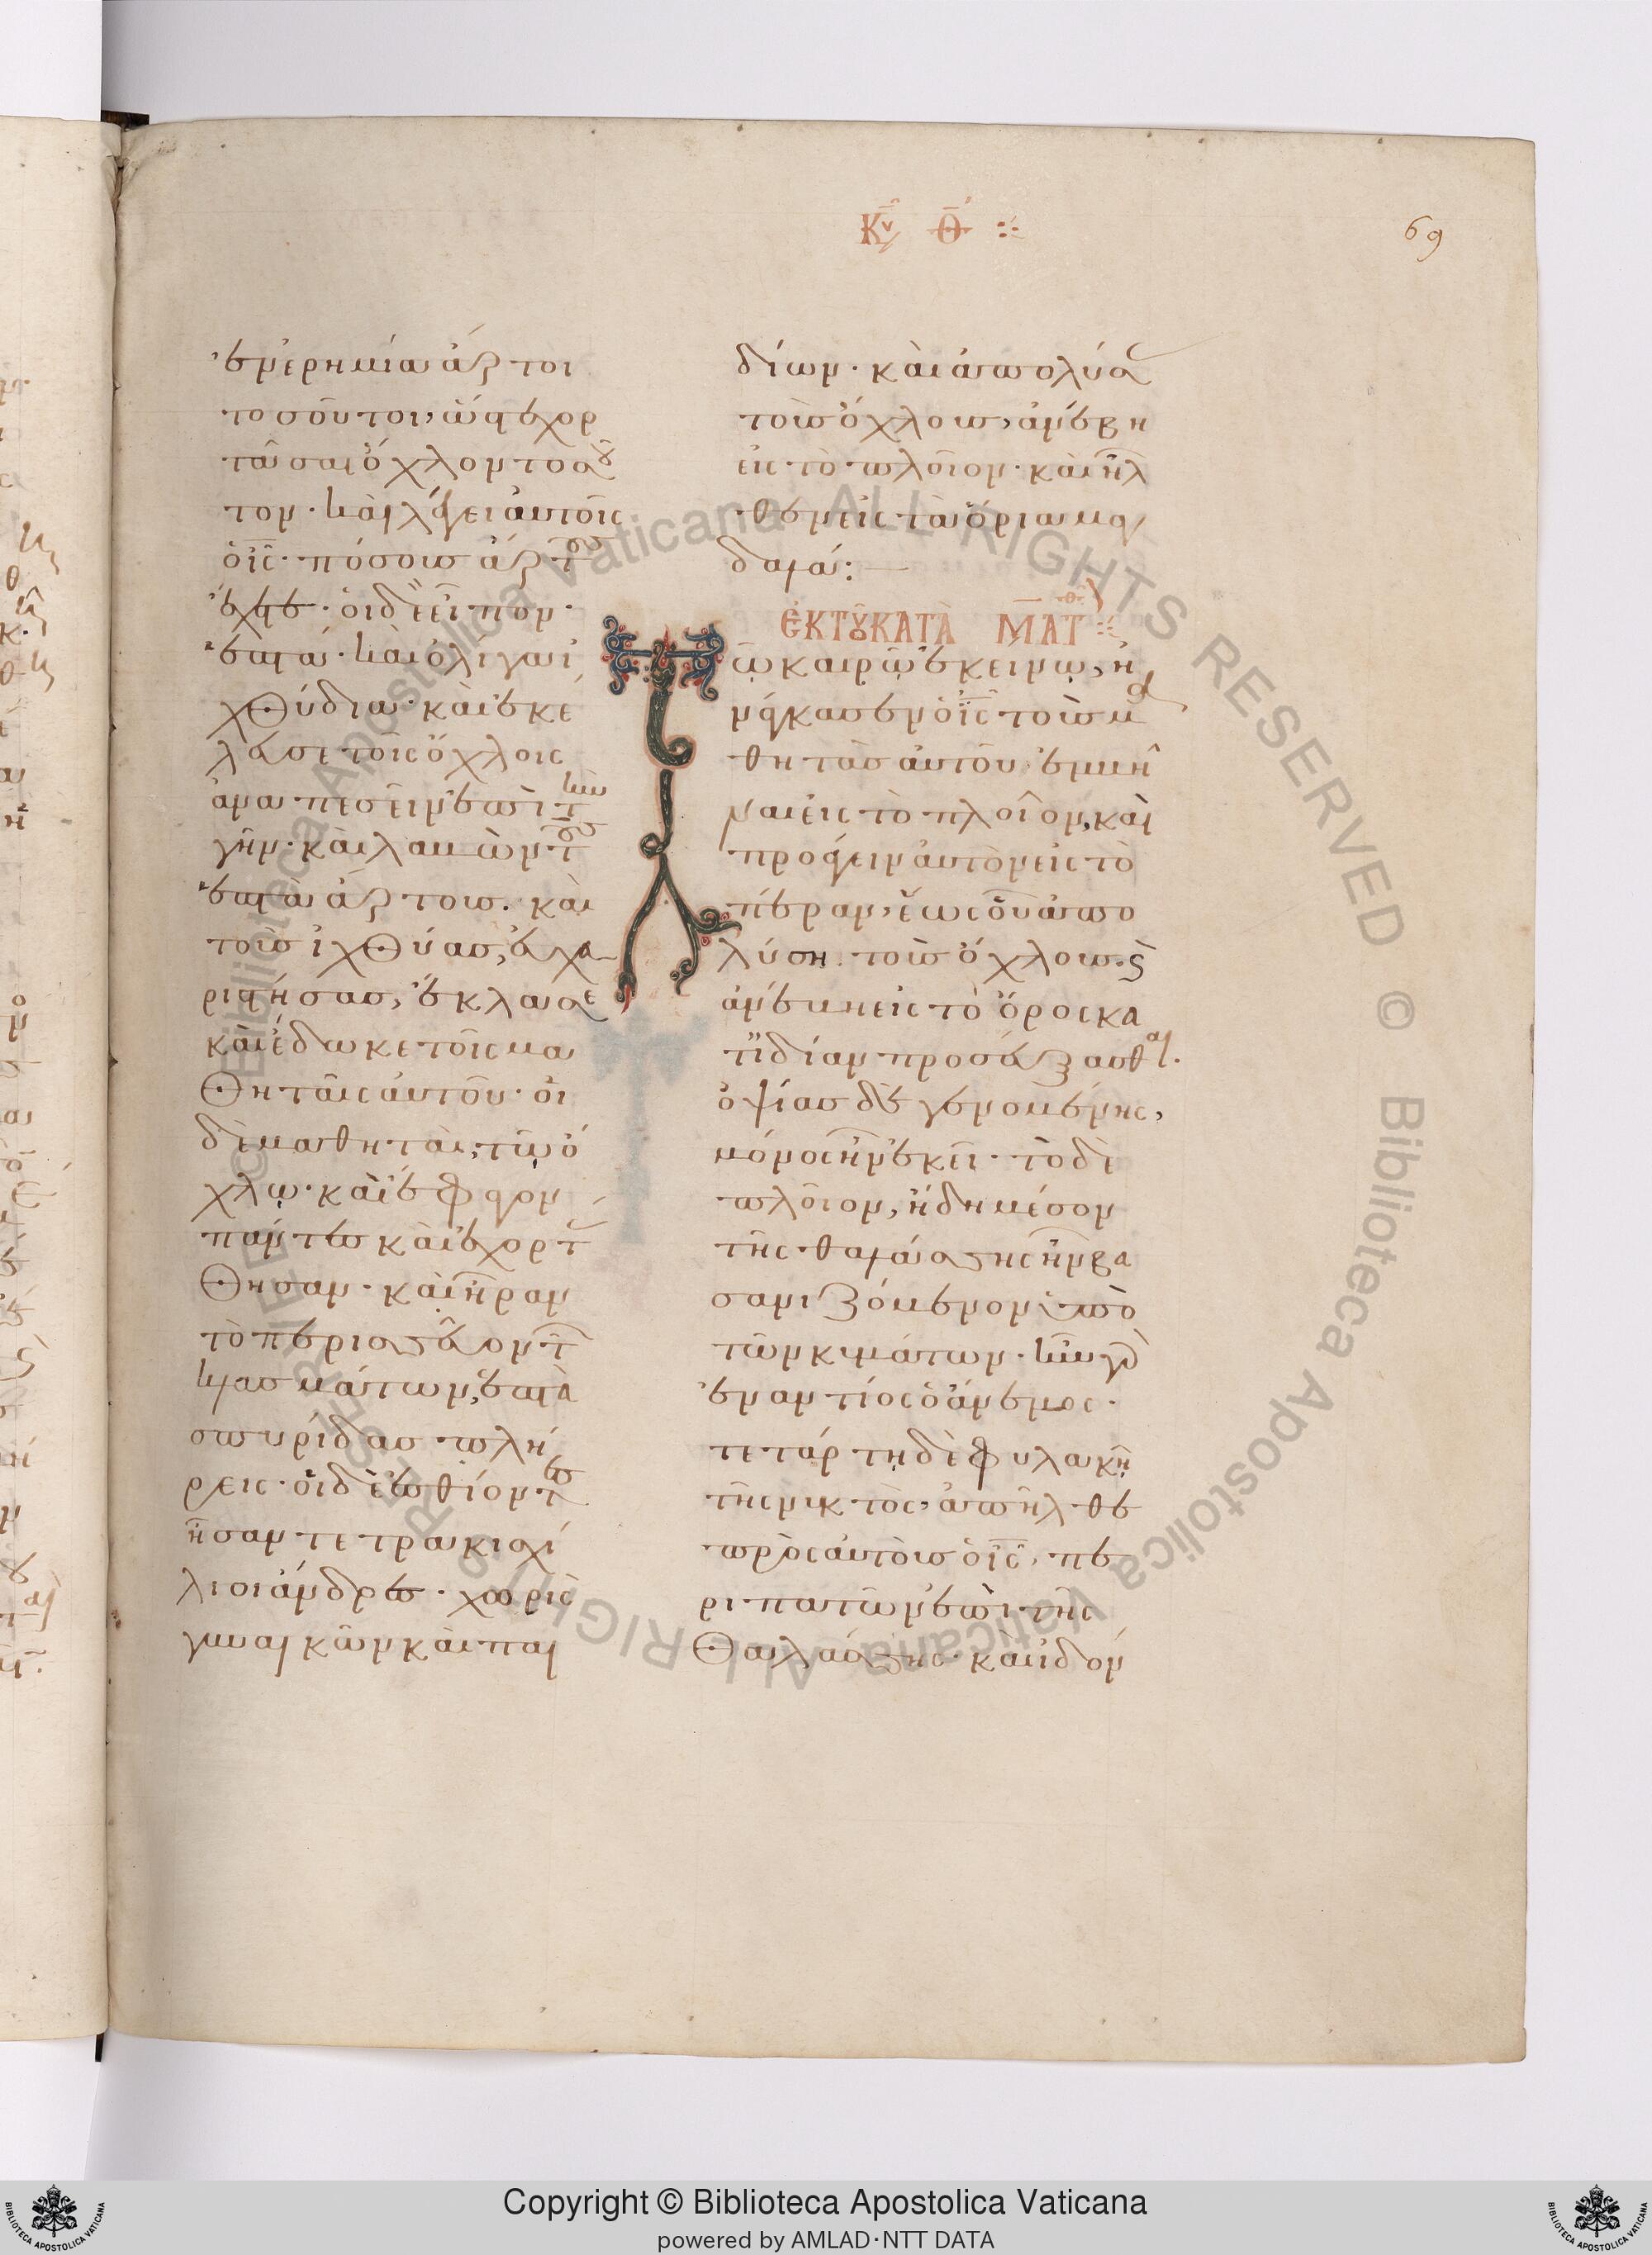 Κυ Θ
69
ἐν ἐρημία ἄρτοι
τοσοῦτοι, ὥστε χορ
τᾶσαι ὄχλον τοσοῦ
τον· καὶ λέγει αὐτοῖς
ὁ ις· πόσους ἄρτους
ἔχετε· οἱ δὲ εἶπον·
ἑπτά· καὶ ὀλίγα ἰ
χθύδια· καὶ ἐκέ
λευσε τοῖς ὄχλοις
ἀναπεσεῖν ἐπὶ τὴν
γῆν· καὶ λαβὼν τοὺς
ἑπτὰ ἄρτους· καὶ
τοὺς ἰχθύας, εὐχα
ριστήσας, ἔκλασε
καὶ ἔδωκε τοῖς μα
θηταῖς αὐτοῦ· οἱ
δὲ μαθηταὶ, τῶ ὄ
χλω· καὶ ἔφαγον
πάντες καὶ ἐχορτά
σθησαν· καὶ ἦραν
τὸ περισσεῦον τῶν
κλασμάτων, ἑπτὰ
σπυρίδας πλή
ρεις· οἱ δὲ ἐσθίοντες
ἦσαν τετρακισχί
λιοι ἄνδρες· χωρὶς
γυναικῶν καὶ παι
δίων· καὶ ἀπολύσας
τοὺς ὄχλους, ἀνέβη
εἰς τὸ πλοῖον· καὶ ἦλ
θεν εἰς τὰ ὅρια μαγ
δαλά:
ἐκ τοῦ κατὰ Ματθ
Τῶ καιρῶ ἐκείνω, ἠ
νάγκασεν ὁ ις τοὺς μα
θητὰς αὐτοῦ ἐμβῆ
ναι εἰς τὸ πλοῖον, καὶ
προάγειν αὐτὸν εἰς τὸ
πέραν, ἕως οὗ ἀπο
λύση τοὺς ὄχλους· καὶ
ἀνέβη εἰς τὸ ὄρος κα
τϊδίαν προσεύξασθαι.
ὀψίας δὲ γενομένης,
μόνος ἦν ἐκεῖ· τὸ δὲ
πλοῖον, ἤδη μέσον
τῆς θαλάσσης ἦν βα
σανιζόμενον ὑπὸ
τῶν κυμάτων· ἦν γὰρ
ἐναντίος ὁ ἄνεμος·
τετάρτη δὲ φυλακῆ
τῆς νυκτὸς, ἀπῆλθε
πρὸς αὐτοὺς ὁ ις, πε
ριπατῶν ἐπὶ τῆς
θαλάσσης· καὶ ἰδόν
© Biblioteca Apostolica Vaticana ALL RIGHTS RESERVED © Biblioteca Apostolica Vaticana ALL RIGHTS RESERVED
Copyright © Biblioteca Apostolica Vaticana
powered by AMLAD·NTT DATA
BIBLIOTECA APOSTOLICA VATICANA
BIBLIOTECA APOSTOLICA VATICANA